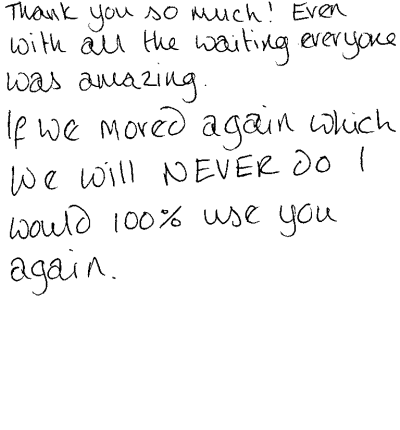 Thank you so much! Even
with all the waiting everyone
was amazing.
If we moved again which
we will NEVER do I
would 100% use you
again.